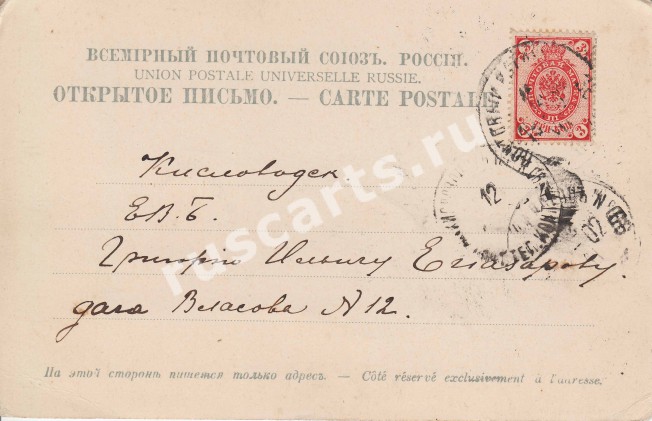 ВСЕМІРНЫЙ ПОЧТОВЫЙ СОЮЗЪ. РОССІЯ.
UNION POSTALE UNIVERSELLE RUSSIE.
ОТКРЫТОЕ ПИСЬМО. — CARTE POSTALE
3 3
3 3
Кисловодск
ЕВБ.
Григорію Ильичу Егиазарову
дача Власова № 12.
12
02
На этой сторонѣ пишется только адресъ. — Côté réservé exclusivement à l'adresse.
ruscarts.ru